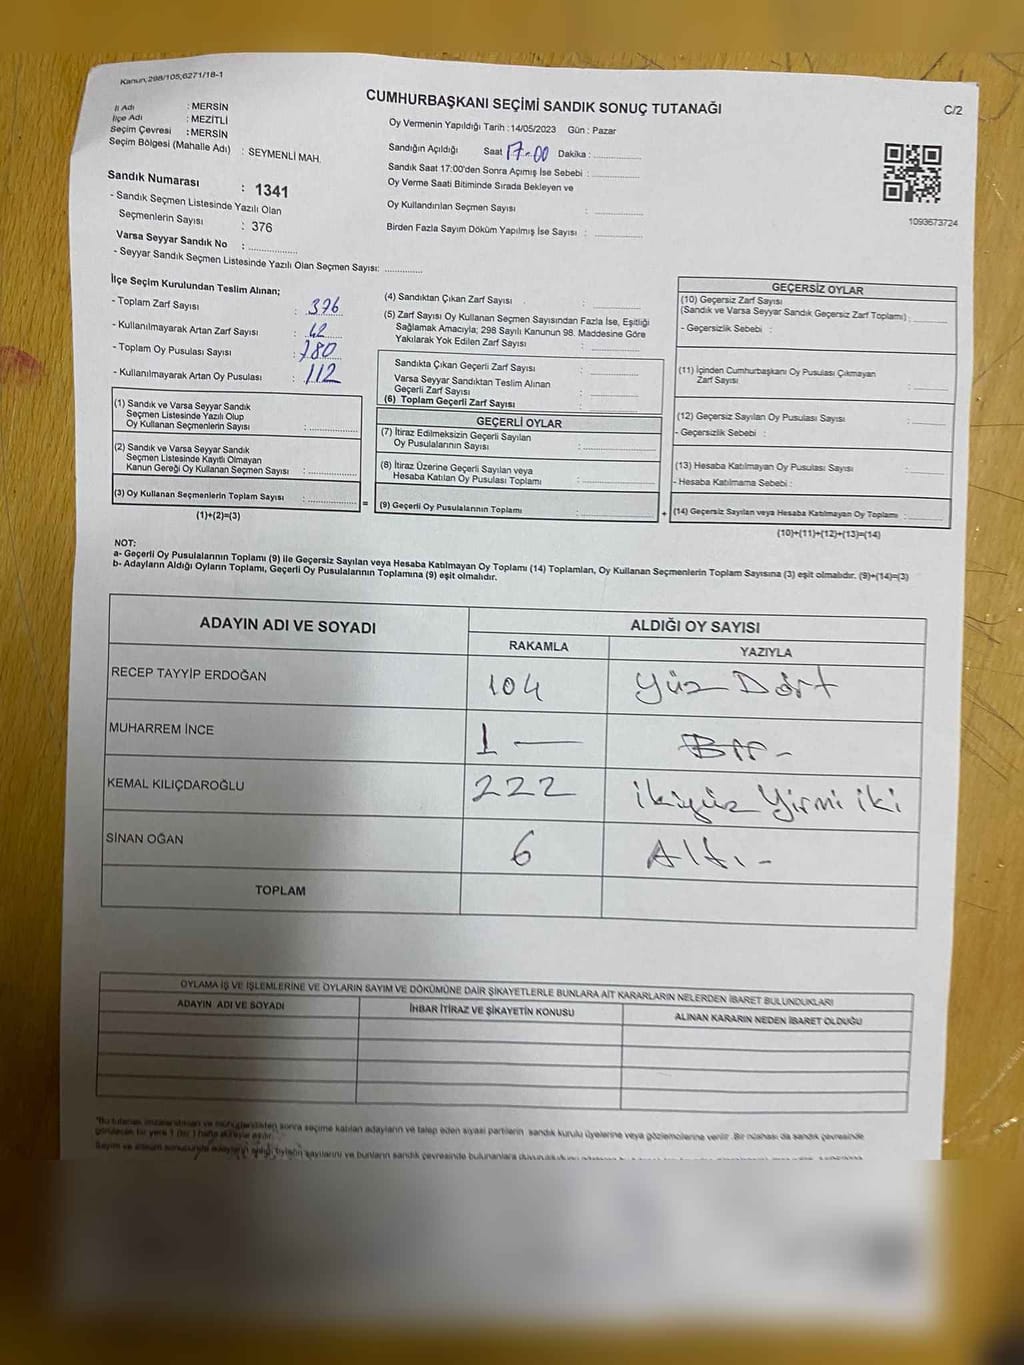 Kanun,298/105,6271/18-1
CUMHURBAŞKANI SEÇİMİ SANDIK SONUÇ TUTANAĞI
C/2
İl Adı : MERSİN
İlçe Adı : MEZİTLİ
Seçim Çevresi : MERSİN
Seçim Bölgesi (Mahalle Adı) : SEYMENLİ MAH.
Oy Vermenin Yapıldığı Tarih :14/05/2023 Gün : Pazar
Sandığın Açıldığı Saat 17-00 Dakika : ..............
Sandık Saat 17:00'den Sonra Açımış İse Sebebi : ..............
Oy Verme Saati Bitiminde Sırada Bekleyen ve
Oy Kullandırılan Seçmen Sayısı : ..............
Birden Fazla Sayım Döküm Yapılmış İse Sayısı : ..............
1093673724
Sandık Numarası : 1341
- Sandık Seçmen Listesinde Yazılı Olan
Seçmenlerin Sayısı : 376
Varsa Seyyar Sandık No : ..............
- Seyyar Sandık Seçmen Listesinde Yazılı Olan Seçmen Sayısı: ..............
İlçe Seçim Kurulundan Teslim Alınan;
- Toplam Zarf Sayısı : 376
- Kullanılmayarak Artan Zarf Sayısı : 42
- Toplam Oy Pusulası Sayısı : 380
- Kullanılmayarak Artan Oy Pusulası : 112
(1) Sandık ve Varsa Seyyar Sandık
Seçmen Listesinde Yazılı Olup
Oy Kullanan Seçmenlerin Sayısı : ..............
(2) Sandık ve Varsa Seyyar Sandık
Seçmen Listesinde Kayıtlı Olmayan
Kanun Gereği Oy Kullanan Seçmen Sayısı : ..............
(3) Oy Kullanan Seçmenlerin Toplam Sayısı : ..............
(1)+(2)=(3)
=
(4) Sandıktan Çıkan Zarf Sayısı : ..............
(5) Zarf Sayısı Oy Kullanan Seçmen Sayısından Fazla İse, Eşitliği
Sağlamak Amacıyla; 298 Sayılı Kanunun 98. Maddesine Göre
Yakılarak Yok Edilen Zarf Sayısı : ..............
Sandıkta Çıkan Geçerli Zarf Sayısı : ..............
Varsa Seyyar Sandıktan Teslim Alınan
Geçerli Zarf Sayısı : ..............
(6) Toplam Geçerli Zarf Sayısı : ..............
GEÇERLİ OYLAR
(7) İtiraz Edilmeksizin Geçerli Sayılan
Oy Pusulalarının Sayısı : ..............
(8) İtiraz Üzerine Geçerli Sayılan veya
Hesaba Katılan Oy Pusulası Toplamı : ..............
(9) Geçerli Oy Pusulalarının Toplamı : ..............
+
GEÇERSİZ OYLAR
(10) Geçersiz Zarf Sayısı
(Sandık ve Varsa Seyyar Sandık Geçersiz Zarf Toplamı) : ..............
- Geçersizlik Sebebi :
(11) İçinden Cumhurbaşkanı Oy Pusulası Çıkmayan
Zarf Sayısı : ..............
(12) Geçersiz Sayılan Oy Pusulası Sayısı : ..............
- Geçersizlik Sebebi :
(13) Hesaba Katılmayan Oy Pusulası Sayısı : ..............
- Hesaba Katılmama Sebebi :
(14) Geçersiz Sayılan veya Hesaba Katılmayan Oy Toplamı : ..............
(10)+(11)+(12)+(13)=(14)
NOT:
a- Geçerli Oy Pusulalarının Toplamı (9) ile Geçersiz Sayılan veya Hesaba Katılmayan Oy Toplamı (14) Toplamları, Oy Kullanan Seçmenlerin Toplam Sayısına (3) eşit olmalıdır. (9)+(14)=(3)
b- Adayların Aldığı Oyların Toplamı, Geçerli Oy Pusulalarının Toplamına (9) eşit olmalıdır.
ADAYIN ADI VE SOYADI
ALDIĞI OY SAYISI
RAKAMLA YAZIYLA
RECEP TAYYİP ERDOĞAN 104 Yüz Dört
MUHARREM İNCE 1 — Bir -
KEMAL KILIÇDAROĞLU 222 ikiyüz Yirmi iki
SİNAN OĞAN 6 Altı -
TOPLAM
OYLAMA İŞ VE İŞLEMLERİNE VE OYLARIN SAYIM VE DÖKÜMÜNE DAİR ŞİKAYETLERLE BUNLARA AİT KARARLARIN NELERDEN İBARET BULUNDUKLARI
ADAYIN ADI VE SOYADI İHBAR İTİRAZ VE ŞİKAYETİN KONUSU ALINAN KARARIN NEDEN İBARET OLDUĞU
sonra seçime katılan adayların ve talep eden siyasi partilerin sandık kurulu üyelerine veya gözlemcilerine verilir. Bir nüshası da sandık çevresinde